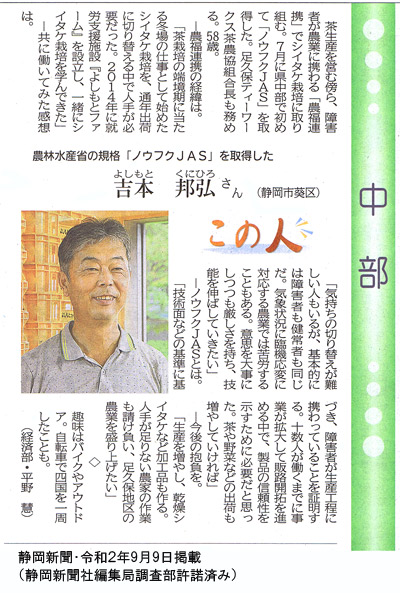 中部
茶生産を営む傍ら、障害
者が農業に携わる「農福連
携」でシイタケ栽培に取り
組む。7月に県中部で初め
て「ノウフクＪＡＳ」を取
得した。足久保ティーワー
クス茶農協組合長も務め
る。58歳。
―農福連携の経緯は。
「茶栽培の端境期に当た
る冬場の仕事として始めた
シイタケ栽培を、通年出荷
に切り替える中で人手が必
要だった。2014年に就
労支援施設『よしもとファ
ーム』を設立し、一緒にシ
イタケ栽培を学んできた」
―共に働いてみた感想
は。
農林水産省の規格「ノウフクＪＡＳ」を取得した
よしもと　くにひろ
吉本　邦弘さん　（静岡市葵区）
この人
「気持ちの切り替えが難
しい人もいるが、基本的に
は障害者も健常者も同じ
だ。気象状況に臨機応変に
対応する農業では苦労する
こともある。意思を大事に
しつつも厳しさを持ち、技
能を伸ばしていきたい」
―ノウフクＪＡＳとは。
「技術面などの基準に基
づき、障害者が生産工程に
携わっていることを証明す
る。十数人が働くまでに事
業が拡大して販路開拓を進
める中で、製品の信頼性を
示すために必要だと思っ
た。茶や野菜などの出荷も
増やしていければ」
―今後の抱負を。
「生産を増やし、乾燥シ
イタケなど加工品も作る。
人手が足りない農家の作業
も請け負い、足久保地区の
農業を盛り上げたい」
◇
趣味はバイクやアウトド
ア。自転車で四国を一周
したことも。
（経済部・平野　慧）
静岡新聞・令和2年9月9日掲載
（静岡新聞社編集局調査部許諾済み）